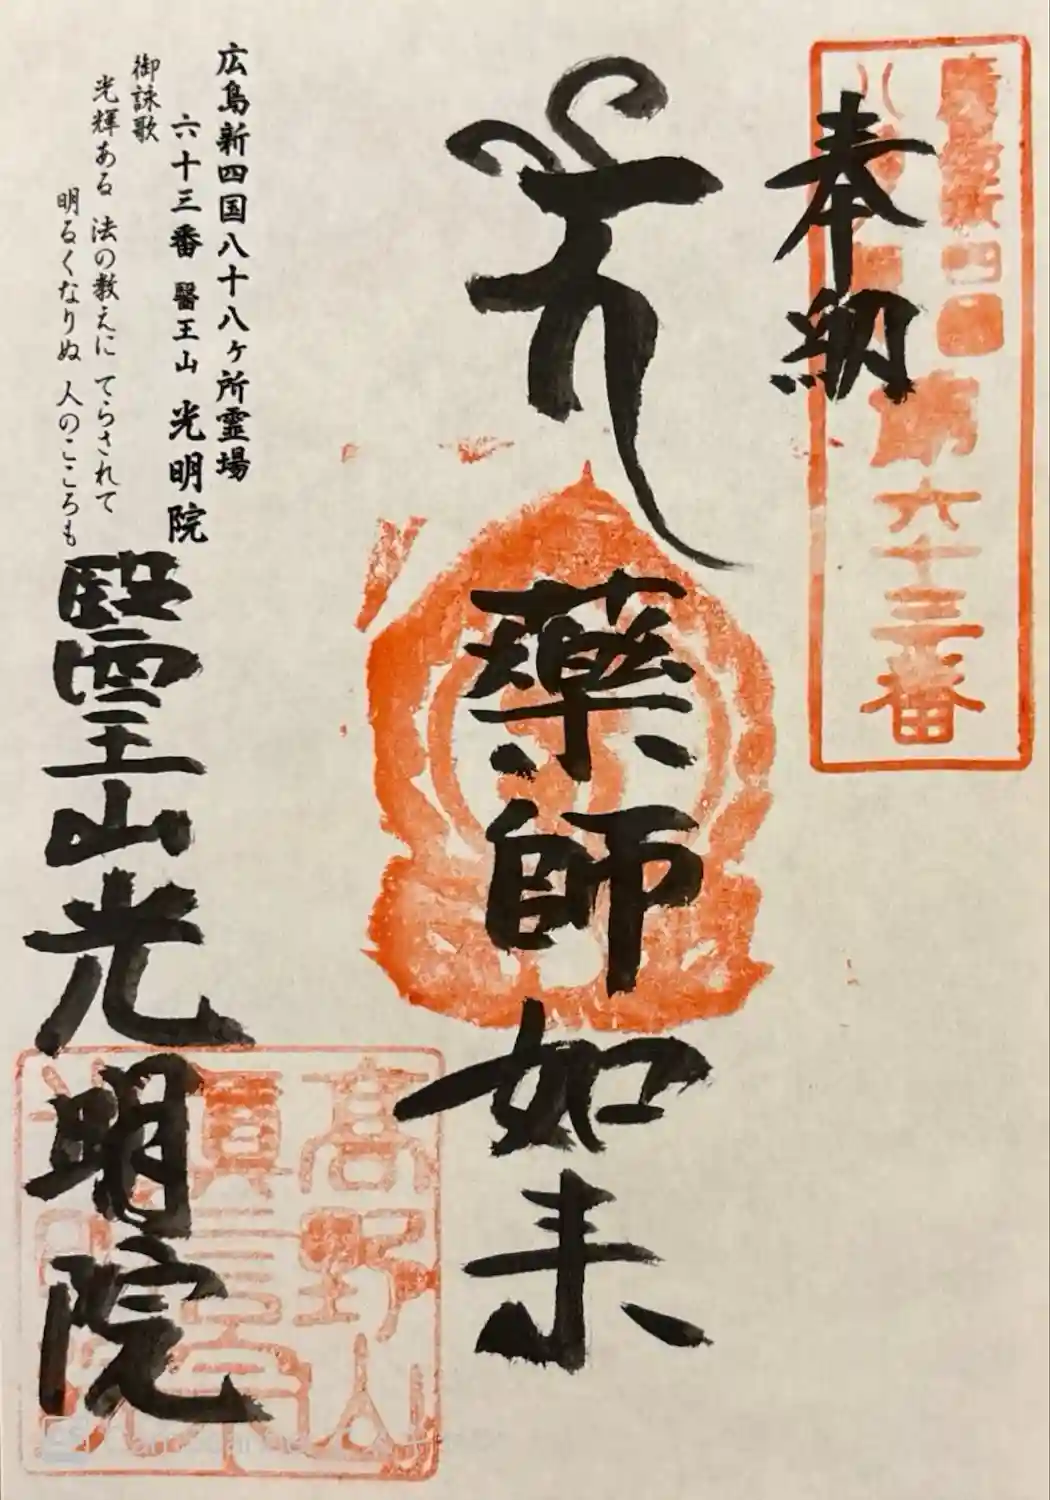 奉納
廣島新四国
八十八ヶ所
第六十三番
藥師如来
醫王山光明院
高野山
真言宗
光明院
広島新四国八十八ヶ所霊場
六十三番 醫王山 光明院
御詠歌
光輝ある 法の教えに てらされて
明るくなりぬ 人のこころも